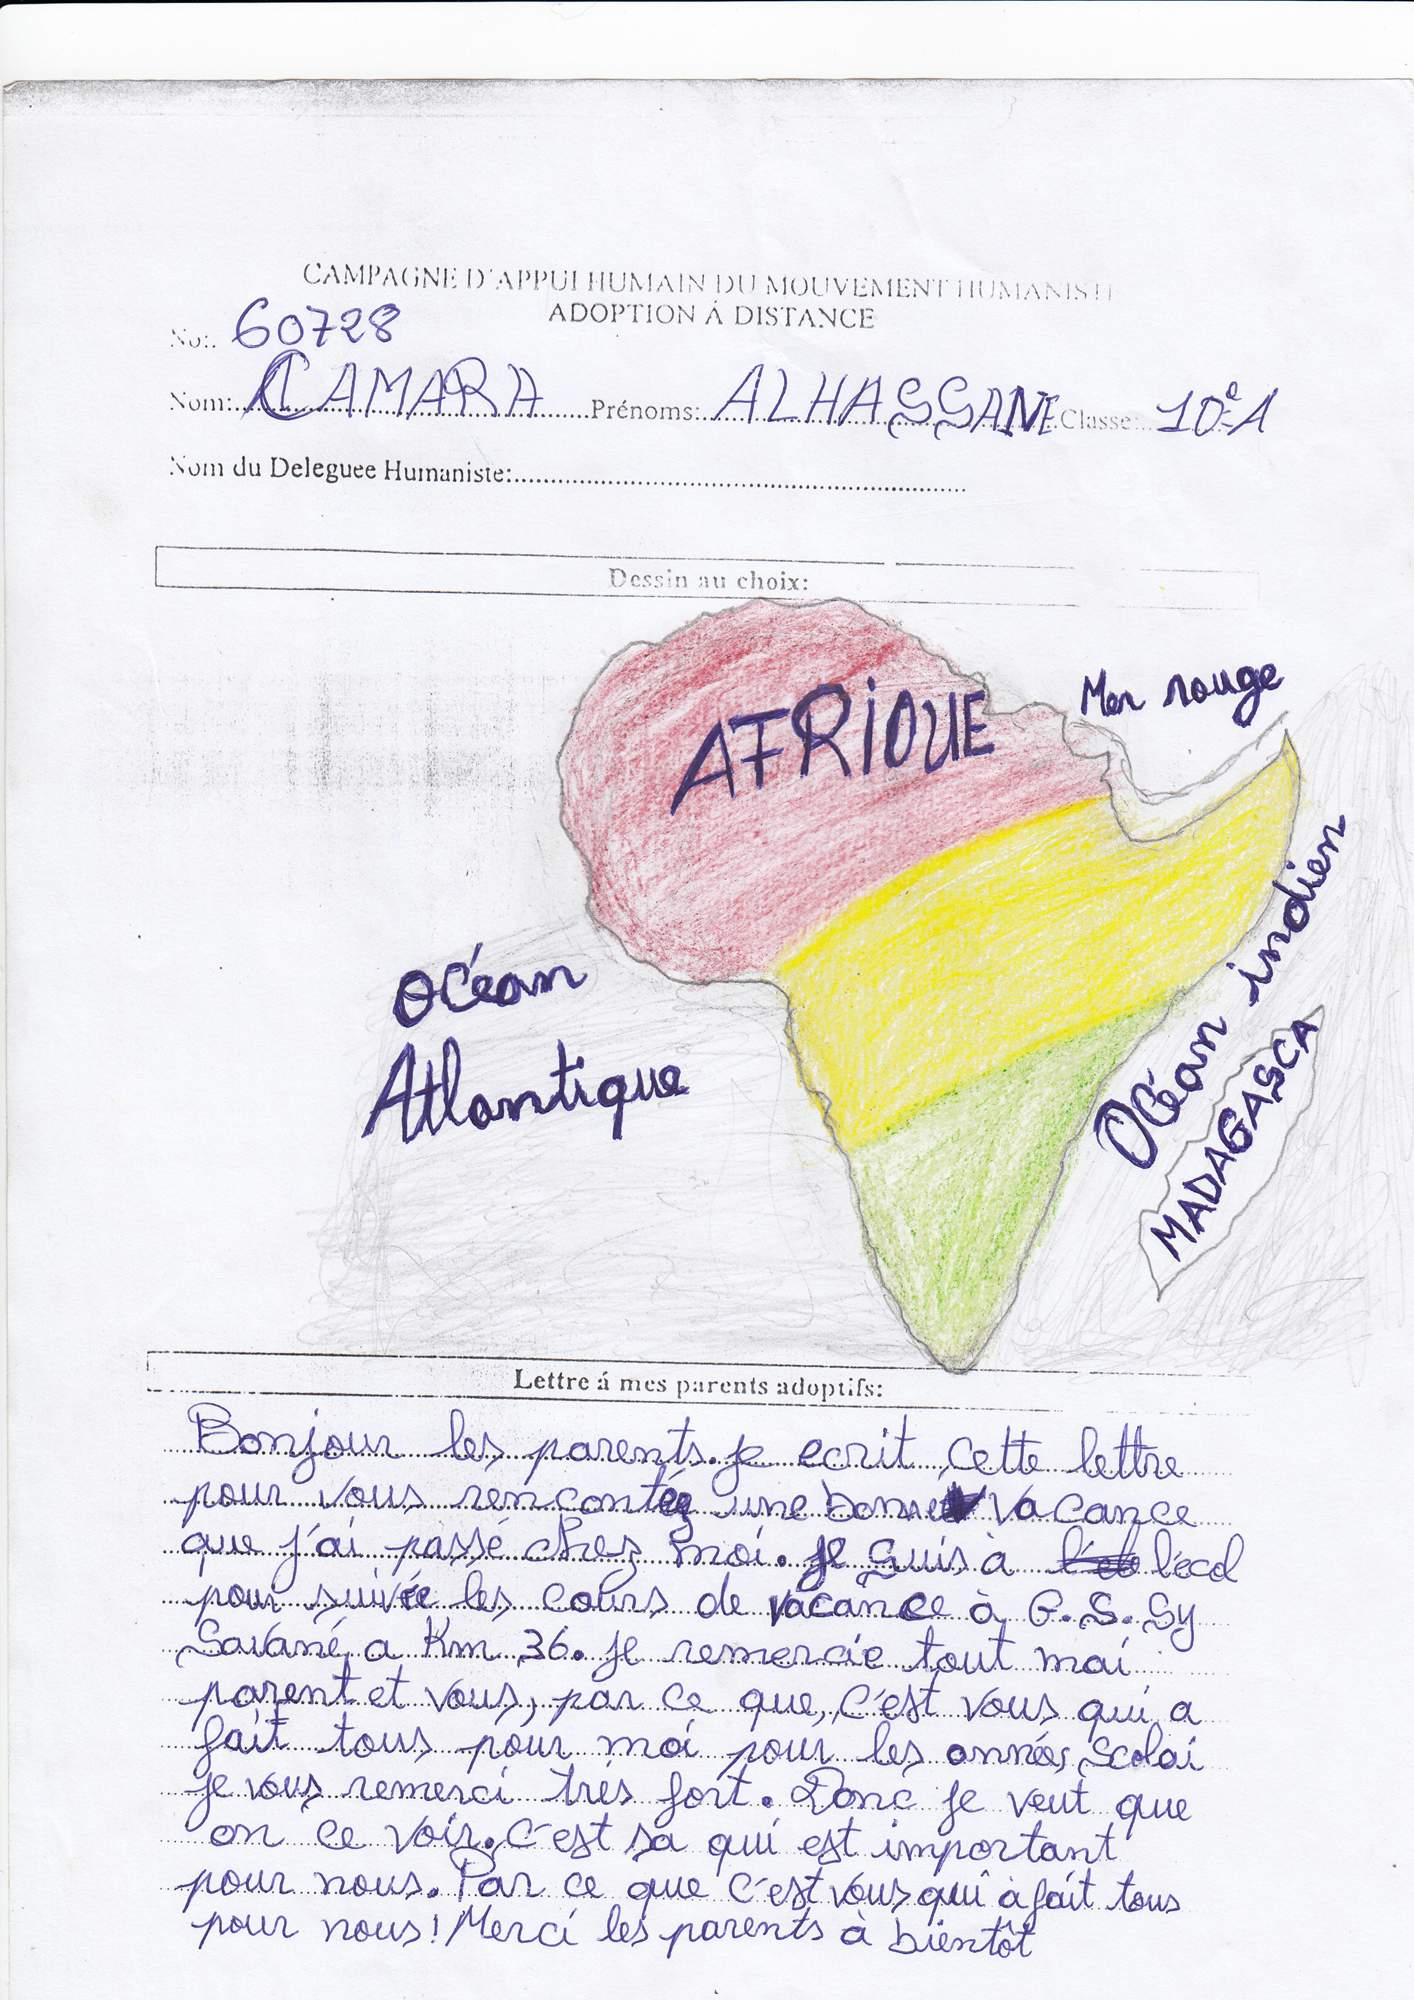 CAMPAGNE D'APPUI HUMAIN DU MOUVEMENT HUMANISTE
ADOPTION Á DISTANCE
No:. 60728
Nom: CAMARA Prénoms: ALHASSANE Classe: 10e A
Nom du Deleguee Humaniste:
Dessin au choix:
AFRIQUE
Mer rouge
Océan indien
Océan
Atlantique
MADAGASCA
Lettre á mes parents adoptifs:
Bonjour les parents. je ecrit cette lettre
pour vous rencontéz une bonne vacance
que j'ai passé chez moi. Je suis à l'écol
pour suivie les cours de vacance à G.S. Sy
Savané a Km 36. je remercie tout mai
parent et vous, par ce que, c'est vous qui a
fait tous pour moi pour les années scolai
je vous remerci très fort. Donc je veut que
on ce voir. C'est sa qui est important
pour nous. Par ce que c'est vous qui à fait tous
pour nous! Merci les parents à bientôt